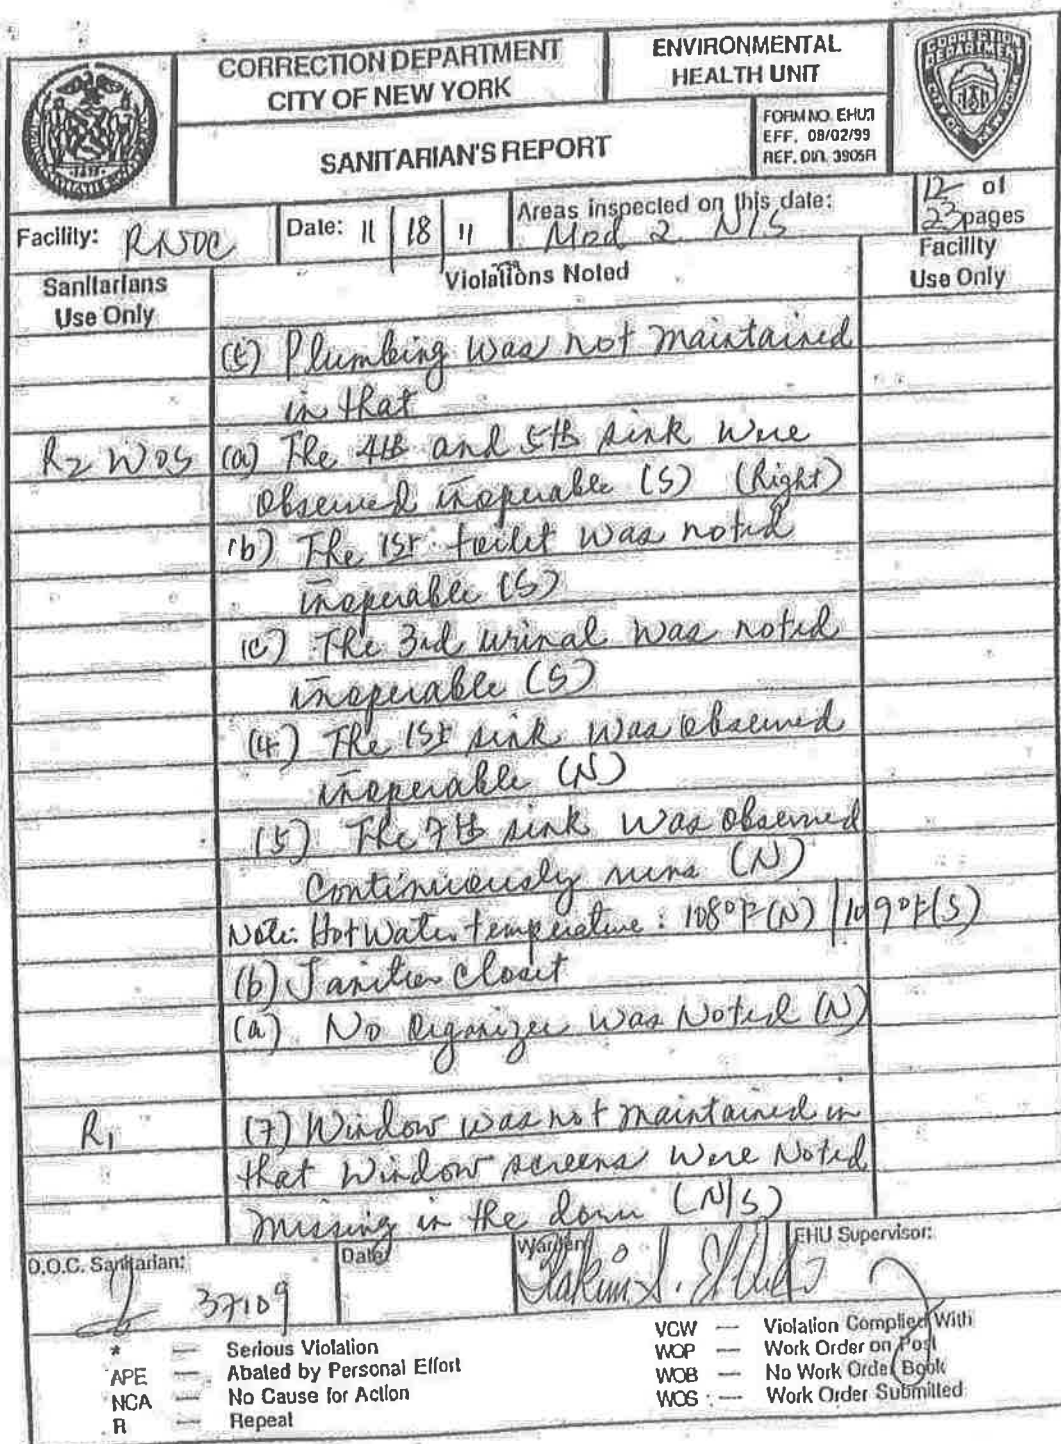 CORRECTION DEPARTMENT
CITY OF NEW YORK
ENVIRONMENTAL
HEALTH UNIT
SANITARIAN'S REPORT
FORM NO. EHU1
EFF. 08/02/99
REF. DIR. 3905R
CORRECTION
DEPARTMENT
CITY OF NEW YORK
Facility: RNDC
Date: 11 | 18 | 11
Areas inspected on this date:
Mod 2 N/S
12 of
23 pages
Sanitarians
Use Only
Violations Noted
Facility
Use Only
Plumbing was not maintained
in that
R2 WOS (a) The 4th and 5th sink were
observed inoperable (S) (Right)
(b) The 1st toilet was noted
inoperable (S)
(c) The 3rd urinal was noted
inoperable (S)
(4) The 1st sink was observed
inoperable (N)
(5) The 7th sink was observed
continuously runs (N)
Note: Hot Water temperature: 108°F (N) / 109°F (S)
(6) Janitor Closet
(a) No Organizer was Noted (N)
R1 (7) Window was not maintained in
that window screens were Noted
missing in the dorm (N/S)
D.O.C. Sanitarian:
37109
Date
Warden
EHU Supervisor:
* — Serious Violation
APE — Abated by Personal Effort
NCA — No Cause for Action
R — Repeat
VCW — Violation Complied With
WOP — Work Order on Post
WOB — No Work Order Book
WOS — Work Order Submitted